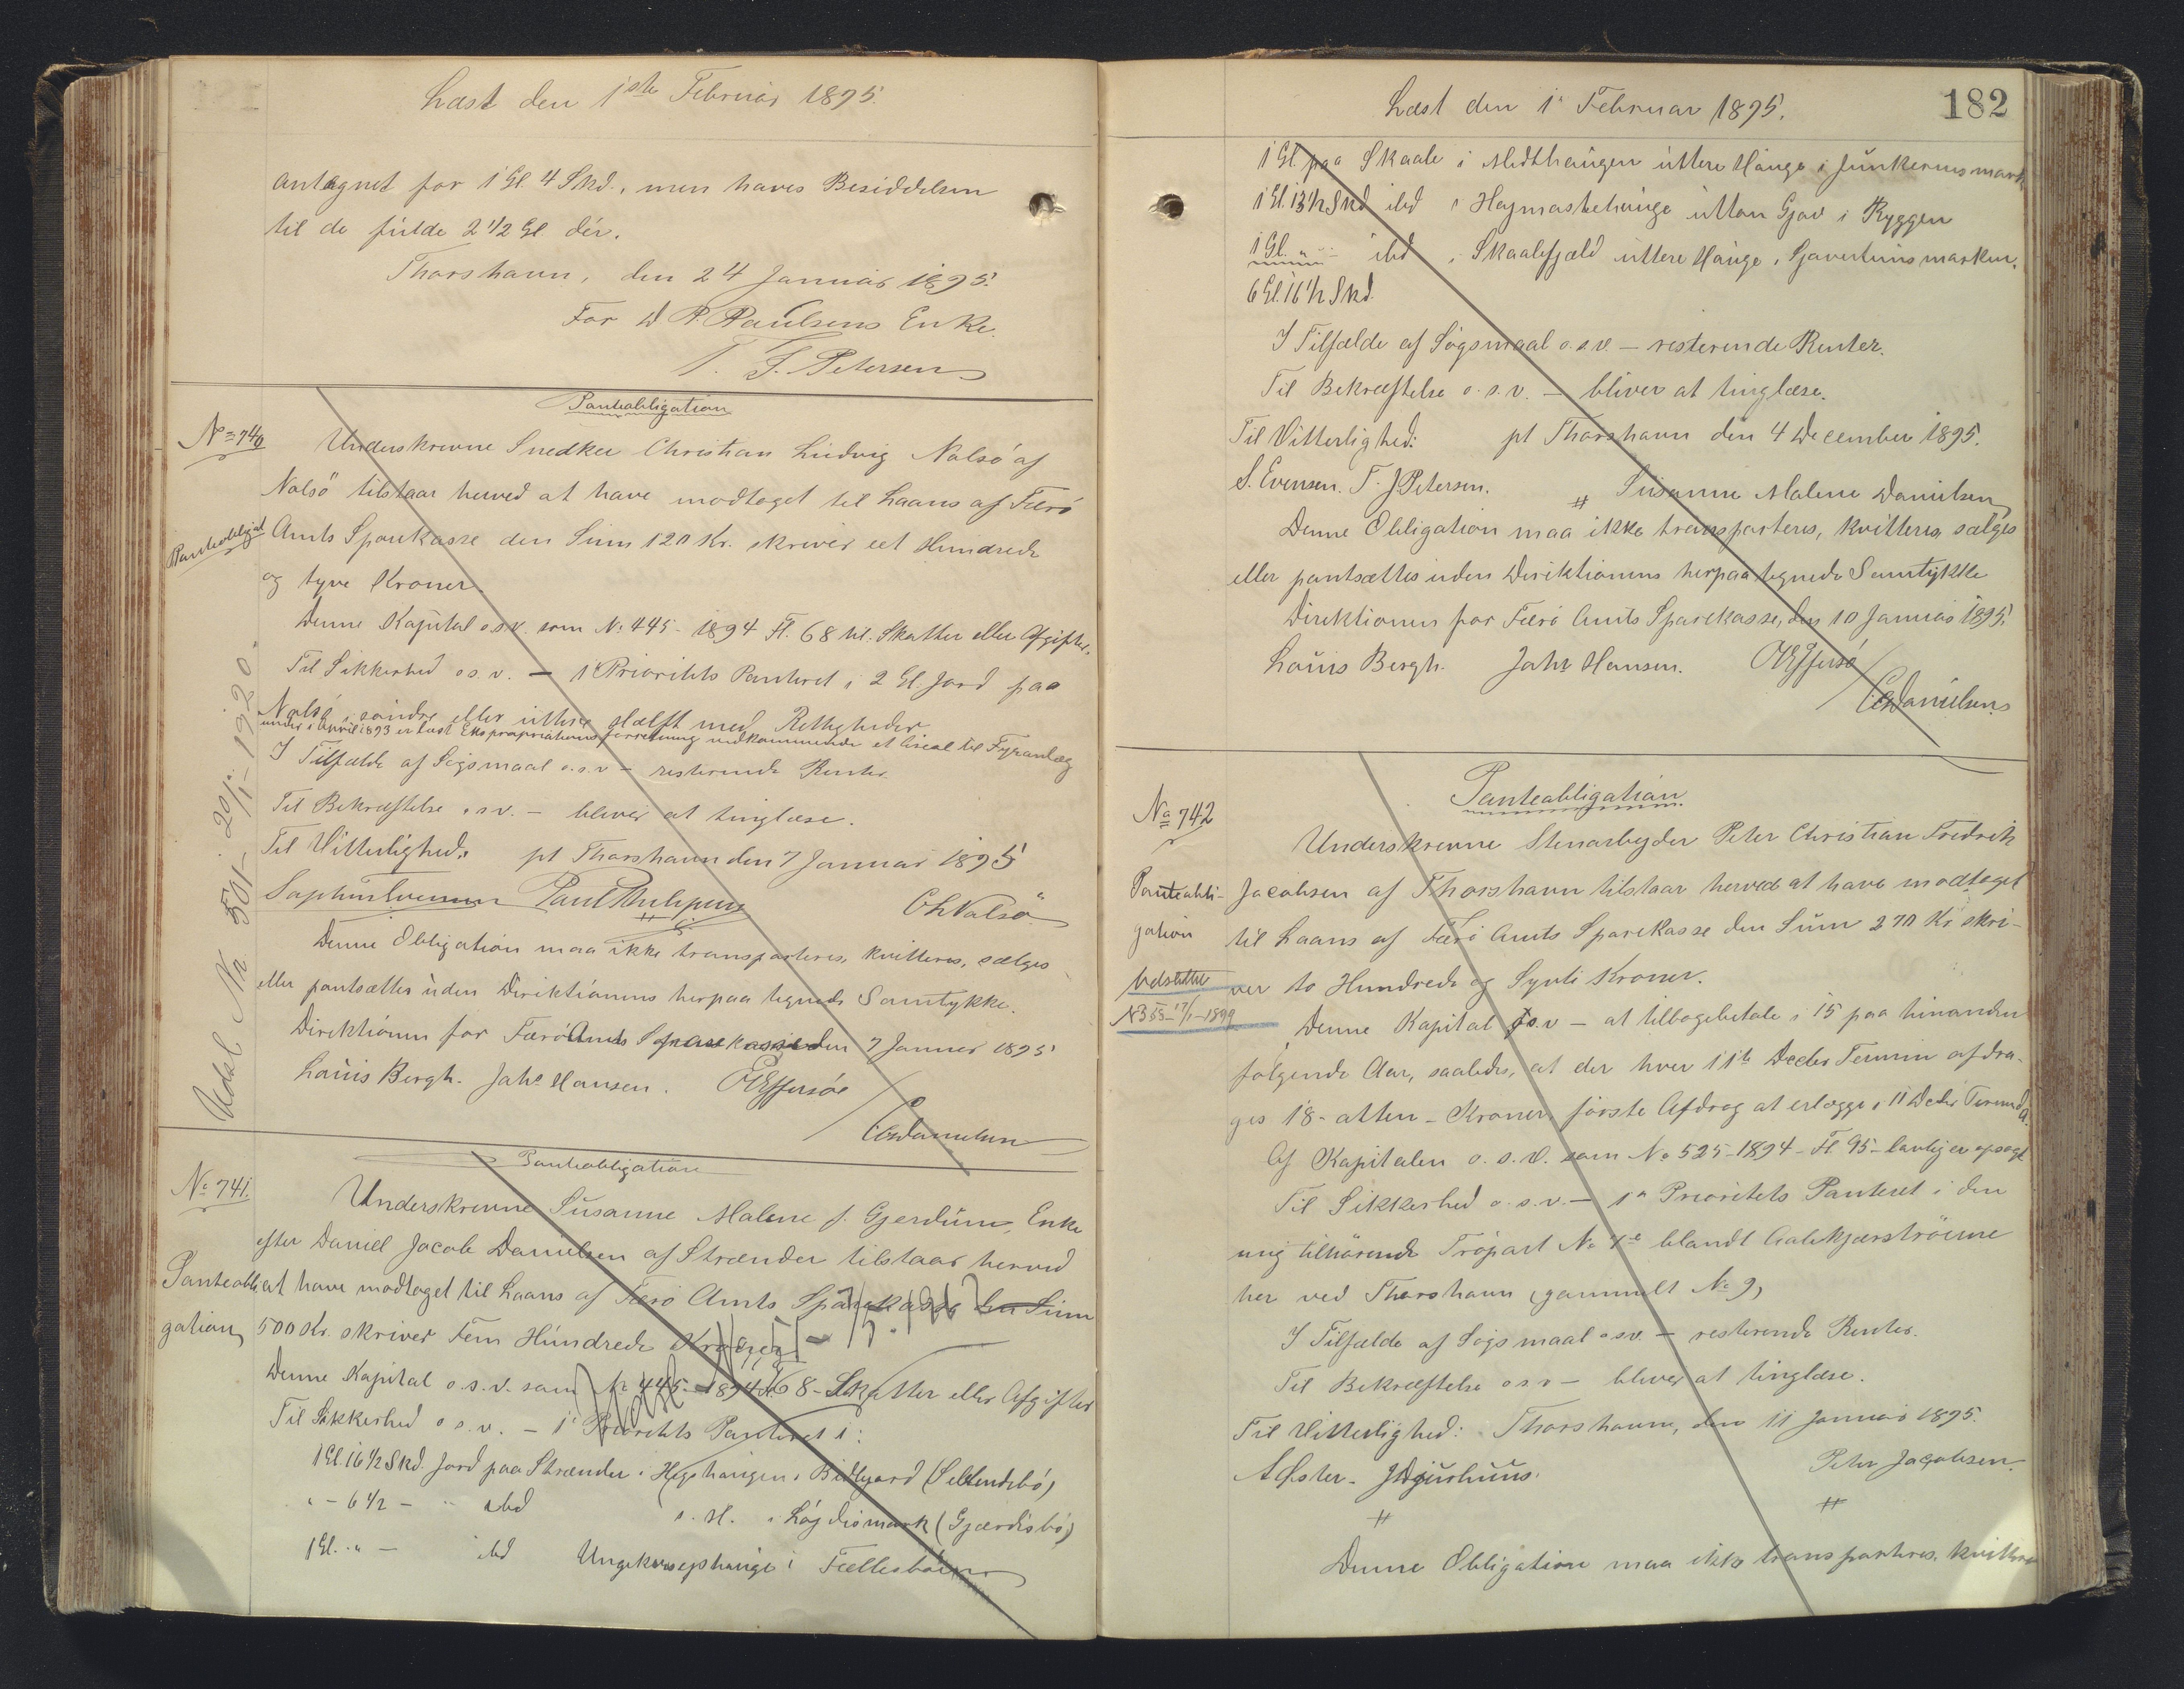 Læst den 1ste Februar 1895.
antegnet for 1 Gl. 4 Skd., men haves Besiddelsen
til de fulde 2 1/2 Gl. dér.
Thorshavn, den 24 Januar 1895.
For D P. Poulsens Enke.
T. F. Petersen
Panteobligation
No 740
Underskrevne Snedker Christian Ludvig Nalsö af
Nalsö tilstaar herved at have modtaget til Laans af Færö
Panteobligat
Amts Sparekasse den Sum 120 Kr. skriver eet Hundrede
og tyve Kroner.
Denne Kapital o.s.v. som No 445 - 1894 Fl. 68 til. Skatter eller Afgifter.
Til Sikkerhed o.s.v. — 1 Prioritets Panteret i 2 Gl. Jord paa
Nalsö, söndre eller ittere Hælft med Rettigheder
under 1 April 1893 er læst Ekspropriationsforretning vedkommende et Areal til Fyranlæg
I Tilfælde af Sögsmaal o.s.v — resterende Renter.
Til Bekræftelse o.s.v. — bliver at tinglæse.
Til Vitterlighed: pt Thorshavn den 7 Januar 1895
Ch Nalsö
Denne Obligation maa ikke transporteres, kvitteres, sælges
eller pantsættes uden Direktionens herpaa tegnede Samtykke.
Direktionen for Færö Amts Sparekasse den 7 Januar 1895
Louis Bergh. Johs Hansen. O Effersöe
CADanielsen
Udsl. No 501 - 20/1 - 1920.
Panteobligation
No 741.
Underskrevne Susanne Malene f. Gjerdum, Enke
efter Daniel Jacob Danielsen af Strænder tilstaar herved
Panteobli
at have modtaget til Laans af Færö Amts Sparekasse den Sum
gation
500 Kr. skriver Fem Hundrede Kroner
Denne Kapital o.s.v. som No 445 - 1894 Fl. 68 - Skatter eller Afgifter
Til Sikkerhed o.s.v. — 1 Prioritets Panteret i:
1 Gl. 16 1/2 Skd. Jord paa Strænder i Högehaugen i
" - 6 1/2 - " ibd i. H. i Lögdismark (Gjærdisbó)
1 Gl. " — ibd i Fællesböen
Læst den 1' Februar 1895.
182
1 Gl. paa Skaale i Midthaugen uttere Hauge i Junkerens mark
1 Gl. 13 1/2 Skd ibd i uttan Gjov i Ryggen
1 Gl. " ibd i Skaalefjæld uttere Hauge,
6 Gl. 16 1/2 Skd.
I Tilfælde af Sögsmaal o.s.v. — resterende Renter.
Til Bekræftelse o.s.v. — bliver at tinglæse.
Til Vitterlighed: pt Thorshavn den 4 December 1895.
S. Evensen. T. J Petersen. Susanne Malene Danielsen
Denne Obligation maa ikke transporteres, kvitteres, sælges
eller pantsættes uden Direktionens herpaa tegnede Samtykke
Direktionen for Færö Amts Sparekasse, den 10 Januar 1895.
Louis Bergh. Johs Hansen. O Effersö
CADanielsen
Panteobligation
No 742
Underskrevne Stenarbejder Peter Christian Fredrik
Panteobli-
Jacobsen af Thorshavn tilstaar herved at have modtaget
gation
til Laans af Færö Amts Sparekasse den Sum 270 Kr skri-
Udslettet
ver to Hundrede og Syvti Kroner.
No 355 - 17/1 - 1899
Denne Kapital o.s.v — at tilbagebetale i 15 paa hinanden
fölgende Aar, saaledes, at der hver 11te Decbr Termin afdra-
ges 18 - atten - Kroner, förste Afdrag at erlægge i 11 Decbr Termin d.A.
Af Kapitalen o.s.v. som No 525 - 1894 - Fl. 95 - lovlig er opsagt
Til Sikkerhed o.s.v. — 1' Prioritets Panteret i den
mig tilhörende Tröpart No 7e blandt
her ved Thorshavn (gammelt No 9)
I Tilfælde af Sögsmaal o.s.v. — resterende Renter.
Til Bekræftelse o.s.v — bliver at tinglæse.
Til Vitterlighed: Thorshavn, den 11 Januar 1895.
Peter Jacobsen.
Denne Obligation maa ikke transporteres, kvitteres